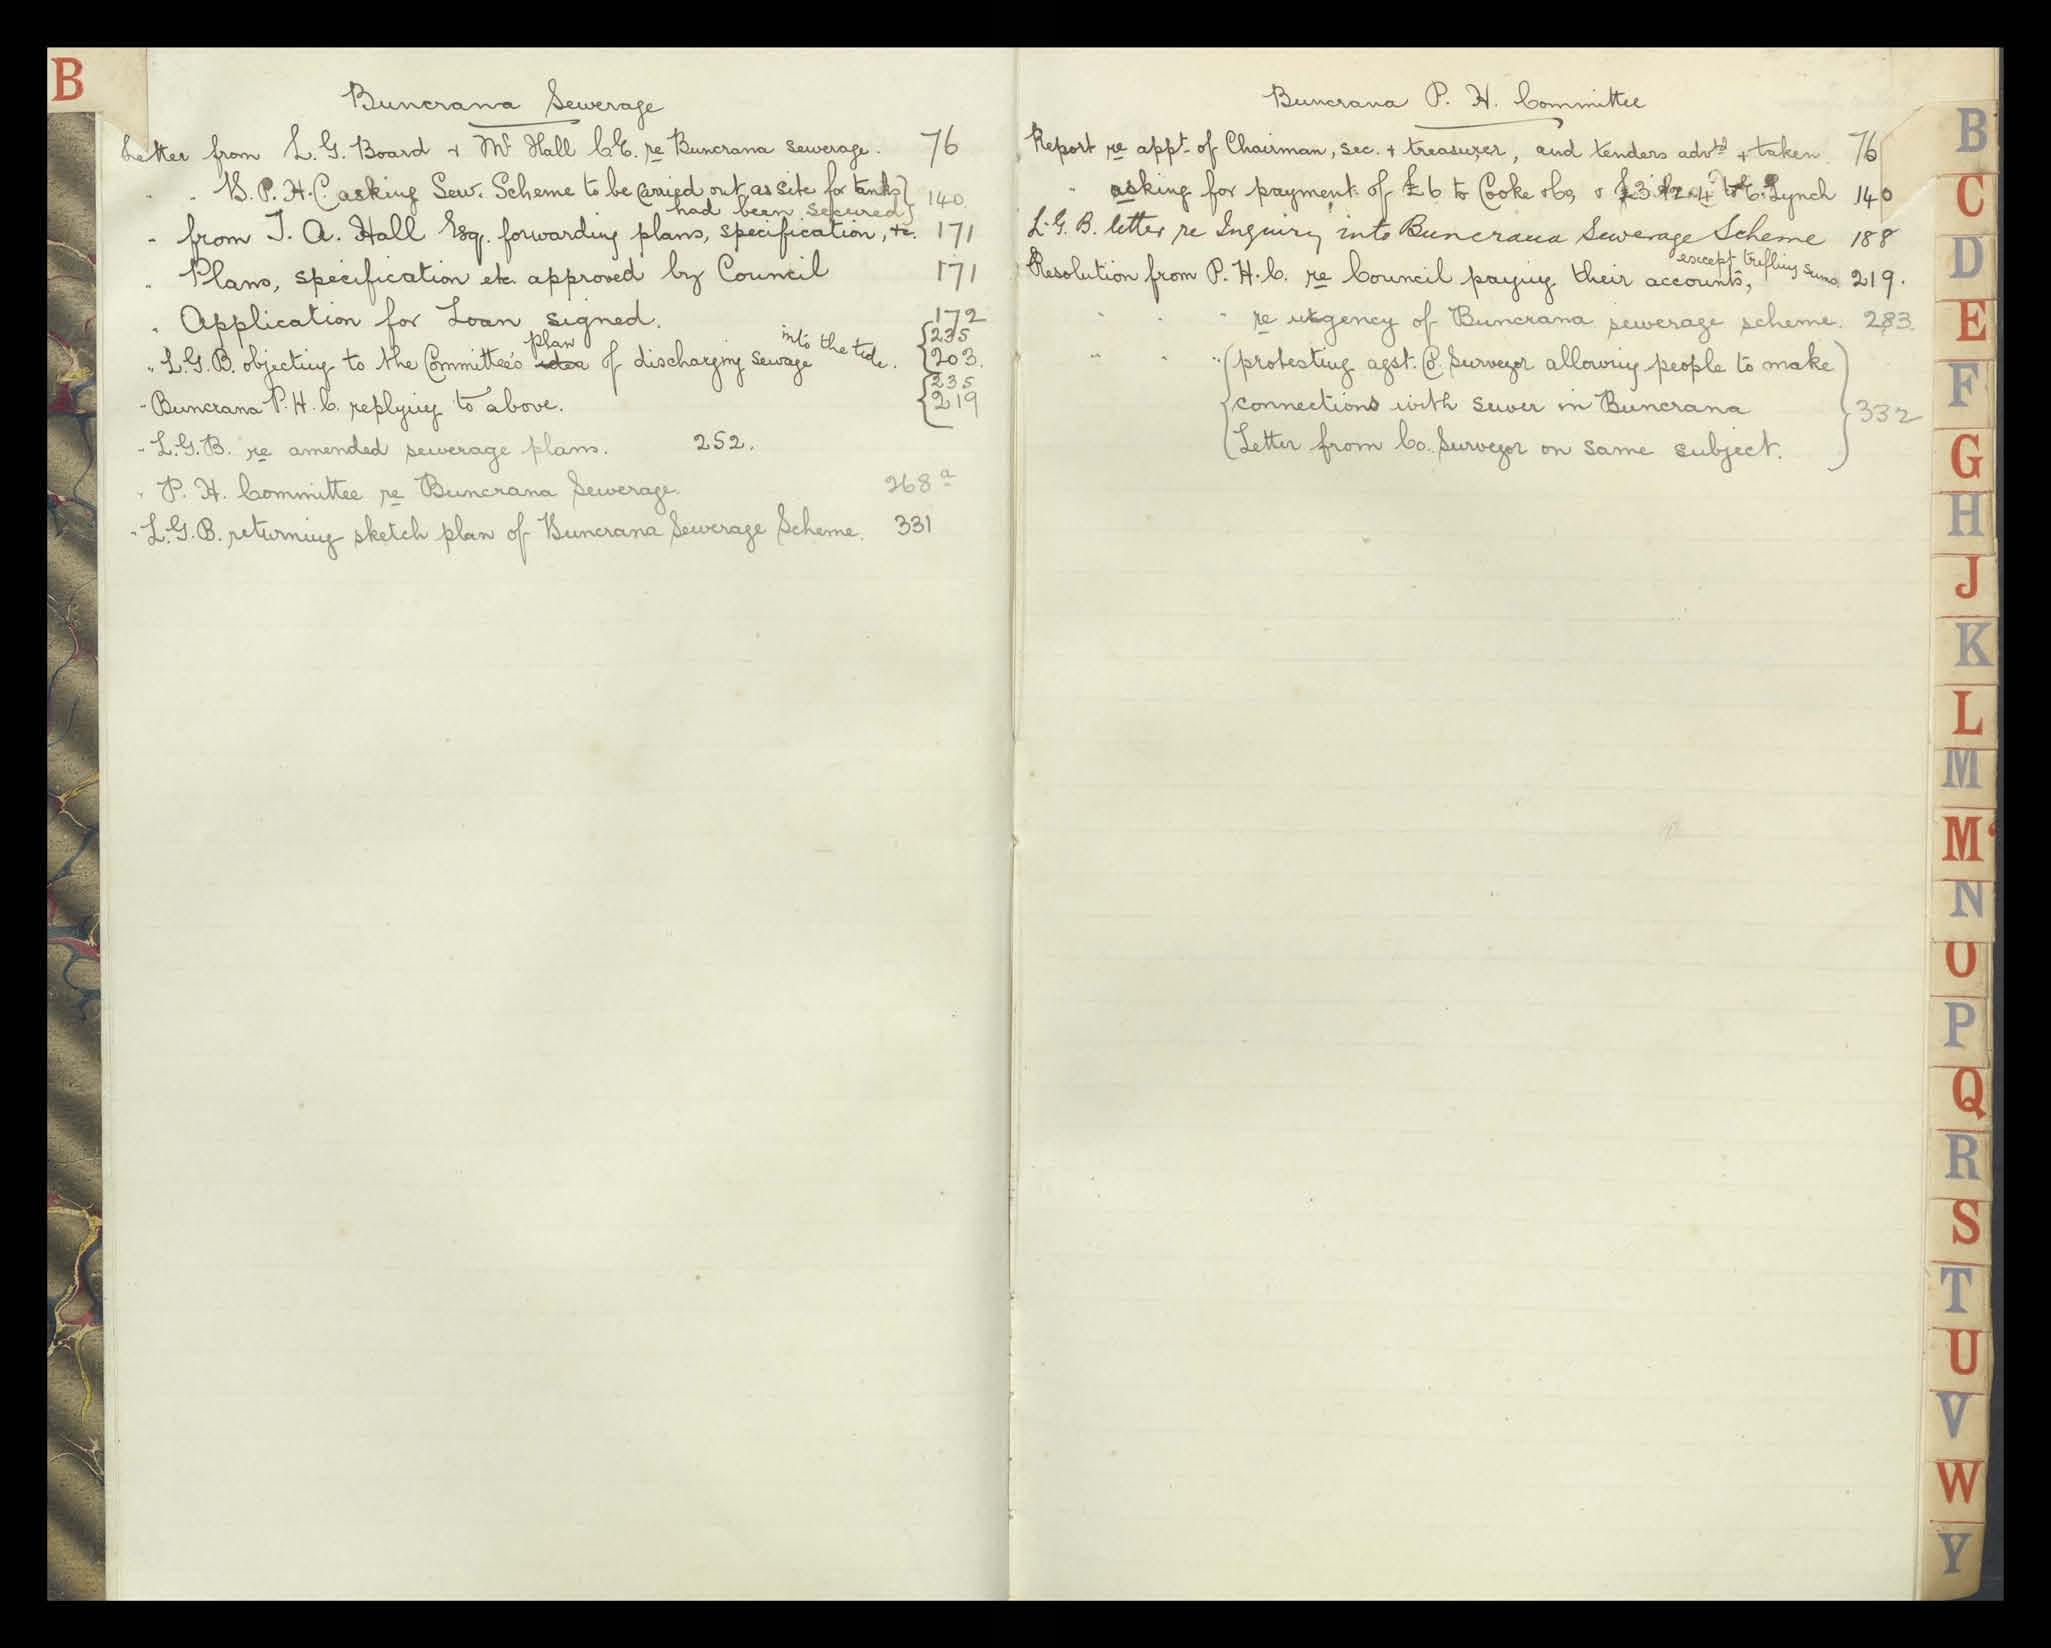 B
Buncrana Sewerage
Letter from L. G. Board + Mr Hall C.E. re Buncrana sewerage. 76
" " B. P. H. C. asking Sew. Scheme to be carried out, as site for tanks
had been secured } 140
" from J. A. Hall Esq. forwarding plans, specification, +c. 171
" Plans, specification etc. approved by Council 171
" Application for Loan signed. 172
" L.G.B. objecting to the Committee's plan of discharging sewage into the tide. { 235 203.
" Buncrana P. H. C. replying to above. { 235 219
" L.G.B. re amended sewerage plans. 252.
" P. H. Committee re Buncrana Sewerage. 268 a
" L.G.B. returning sketch plan of Buncrana Sewerage Scheme. 331
Buncrana P. H. Committee
Report re appt. of Chairman, sec. + treasurer, and tenders advtd + taken. 76
" asking for payment of £6 to Cooke & Co, & Lynch 140
L. G. B. letter re Inquiry into Buncrana Sewerage Scheme 188
Resolution from P. H. C. re Council paying their accounts, except trifling sums. 219.
" " " re urgency of Buncrana sewerage scheme. 283.
" " " ( protesting agst. Co. Surveyor allowing people to make
connections with sewer in Buncrana } 332
Letter from Co. Surveyor on same subject.
B
C
D
E
F
G
H
J
K
L
M
Mc
N
O
P
Q
R
S
T
U
V
W
Y